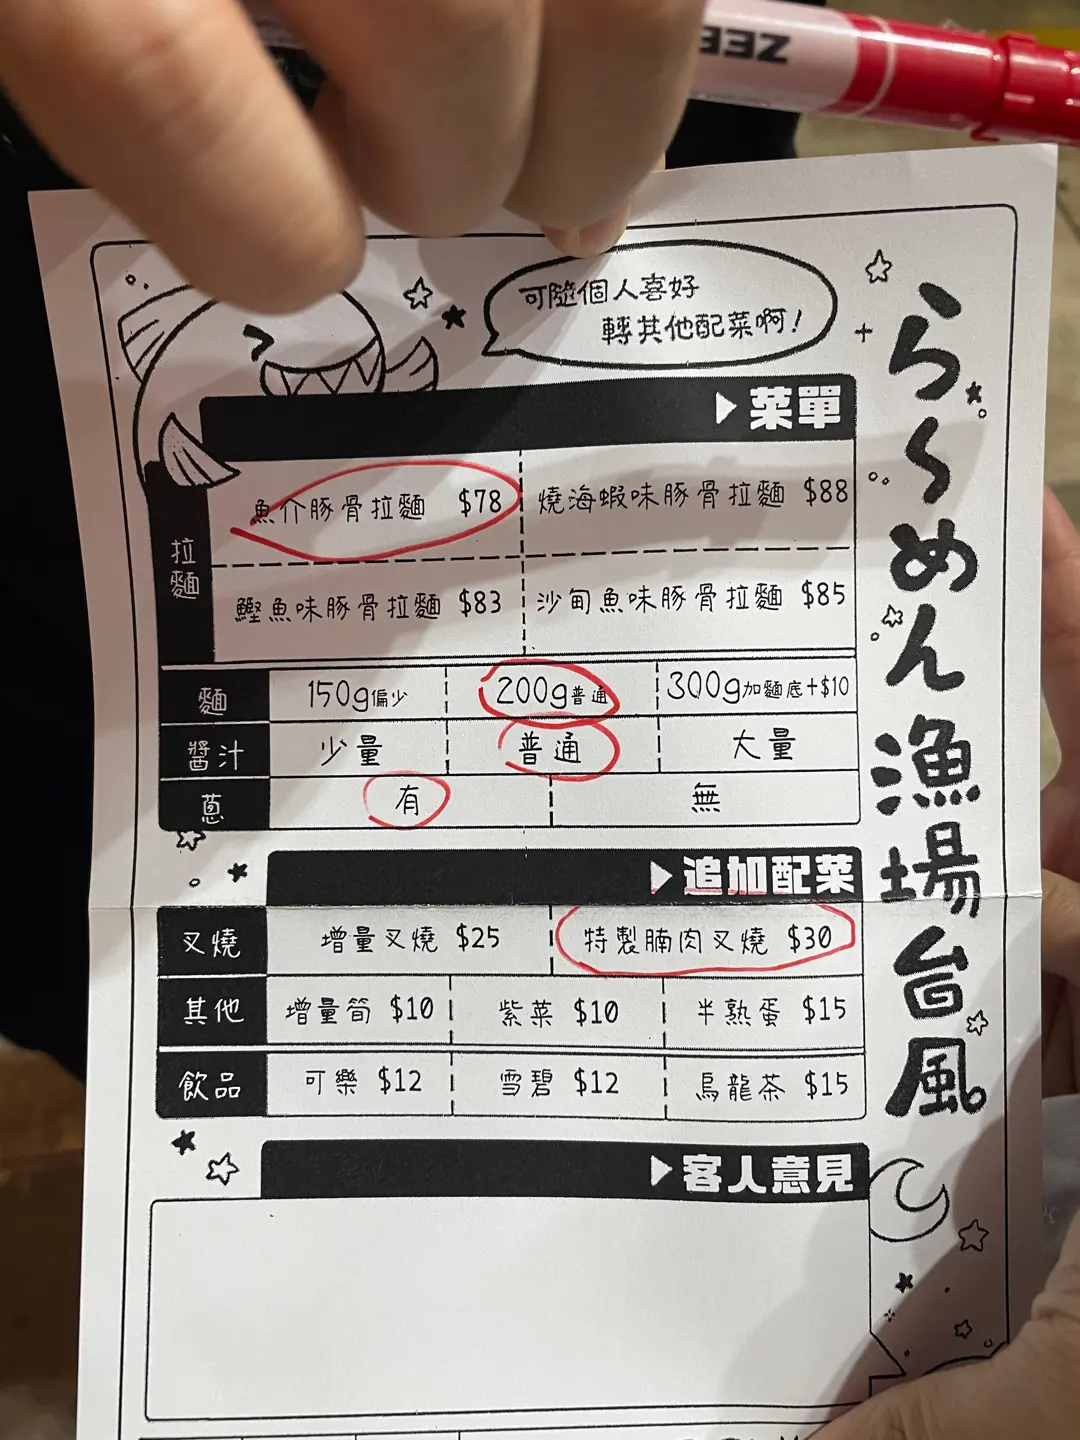 ZEB
可隨個人喜好
轉其他配菜啊!
らーめん漁場台風
▶菜單
拉麵
魚介豚骨拉麵 $78
燒海蝦味豚骨拉麵 $88
鰹魚味豚骨拉麵 $83
沙甸魚味豚骨拉麵 $85
麵 150g偏少 200g普通 300g加麵底+$10
醬汁 少量 普通 大量
蔥 有 無
▶追加配菜
叉燒 增量叉燒 $25 特製腩肉叉燒 $30
其他 增量筍 $10 紫菜 $10 半熟蛋 $15
飲品 可樂 $12 雪碧 $12 烏龍茶 $15
▶客人意見